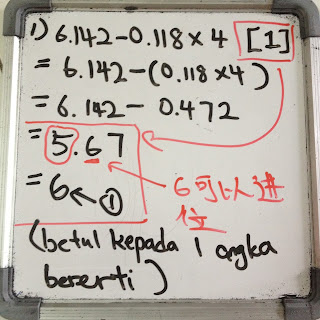 1) 6.142-0.118×4 [1]
= 6.142-(0.118×4)
= 6.142- 0.472
= 5.67
= 6 ← ①
6可以进
位
(betul kepada 1 angka
bererti)